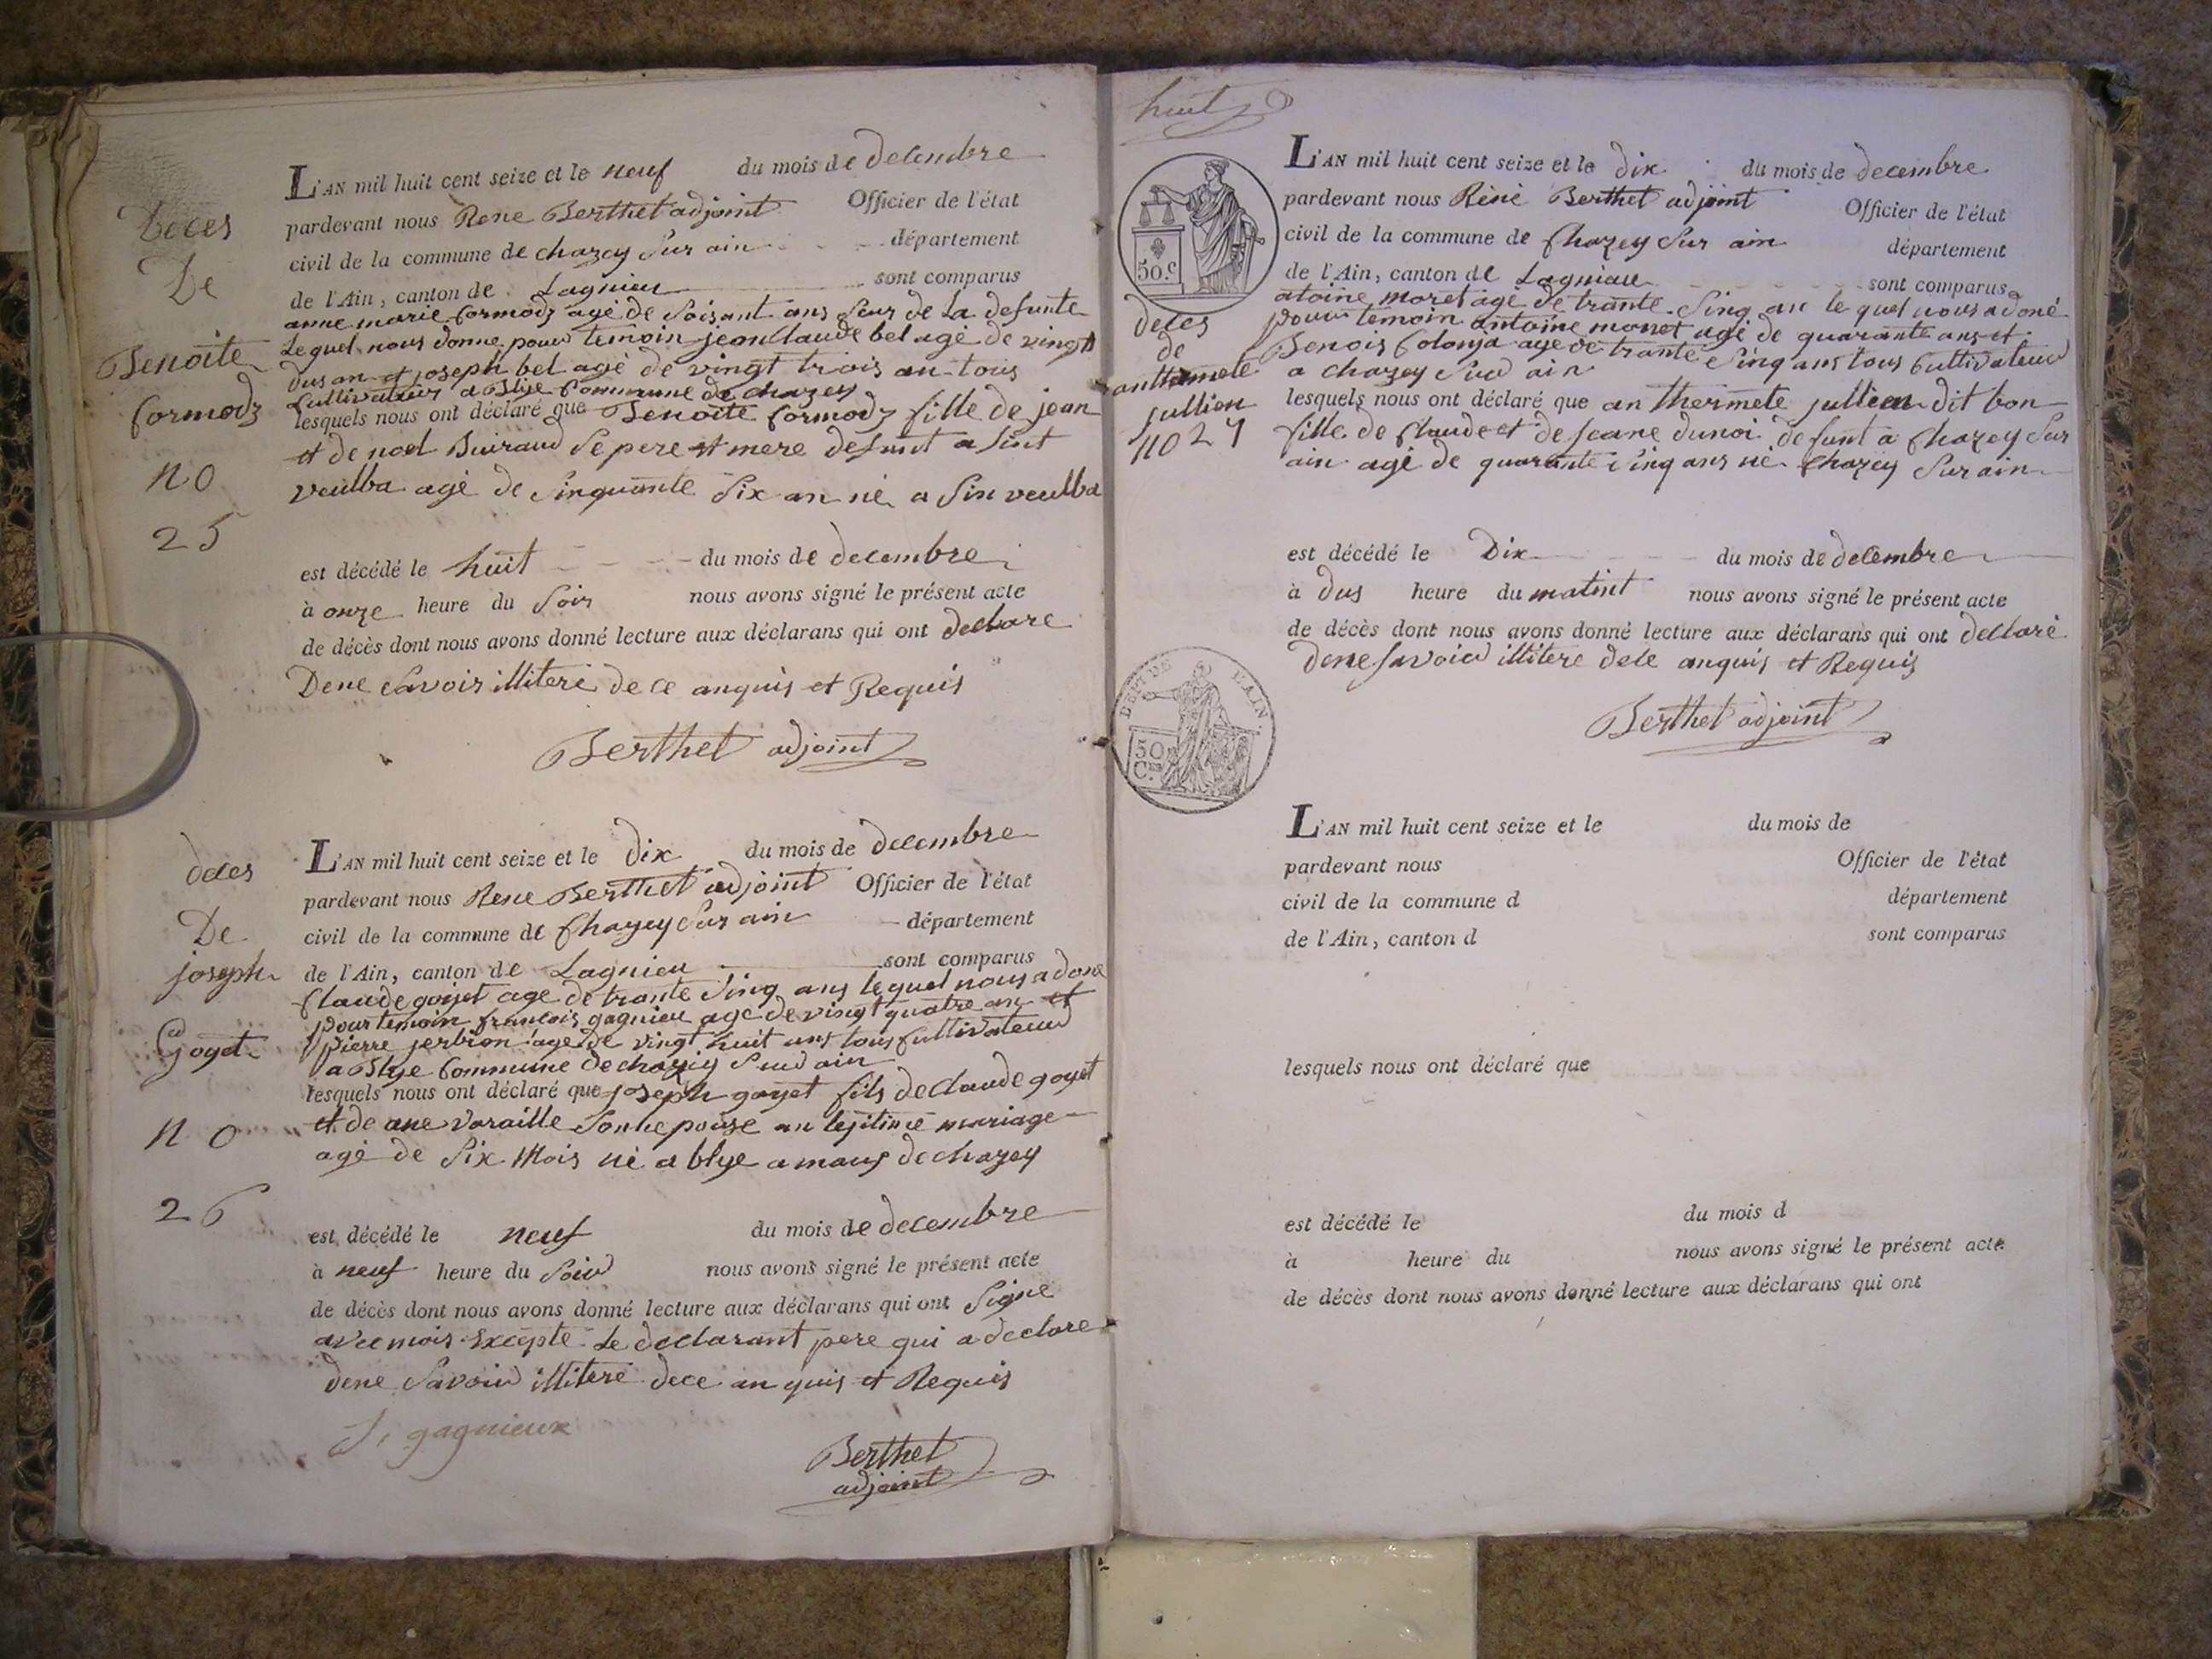 Deces
De
Benoite
Cormodz
no
25
L'AN mil huit cent seize et le neuf du mois de decembre
pardevant nous Rene Berthet adjoint Officier de l'état
civil de la commune de chazey Sur ain département
de l'Ain, canton de Lagnieu sont comparus
anne marie Cormodz agé de Soisant ans Seur de La defunte
Lequel nous donne pour temoin jean Claude bel agé de vingt
dus an et joseph bel agé de vingt trois an tous
Cultivateur a Blye Commune de chazey
lesquels nous ont déclaré que Benoite Cormodz fille de jean
et de noel Buiraud Se pere et mere defunt a Sint
veulba agé de Sinquante Six an né a Sin veulba
est décédé le huit du mois de decembre
à onze heure du Soir nous avons signé le présent acte
de décès dont nous avons donné lecture aux déclarans qui ont declare
Dene Savoir illitere de ce anquis et Requis
Berthet adjoint
deces
De
joseph
goyet
no
26
L'AN mil huit cent seize et le dix du mois de decembre
pardevant nous Rene Berthet adjoint Officier de l'état
civil de la commune de Chazey Sur ain département
de l'Ain, canton de Lagnieu sont comparus
Claude goyet age de trante Sing ans lequel nous a done
pour temoin francois gagnieu age de vingt quatre an et
pierre jerbion age de vingt huit ans tous Cultivateur
a Blye Commune de chazey Sur ain
lesquels nous ont déclaré que joseph goyet fils de Claude goyet
et de ane varaille Son hepouse an lejitime mariage
agé de Six Mois né a blye amaus de chazey
est décédé le neuf du mois de decembre
à neuf heure du Soir nous avons signé le présent acte
de décès dont nous avons donné lecture aux déclarans qui ont Signe
avec mois Excepte Le declarant pere qui a declare
dene Savoir illitere dece anquis et Requis
gagnieux
Berthet
adjoint
huit
50.c
DEPT DE L'AIN
50
C.
deces
de
anthermete
jullien
no 27
L'AN mil huit cent seize et le dix du mois de decembre
pardevant nous Réné Berthet adjoint Officier de l'état
civil de la commune de Chazey Sur ain département
de l'Ain, canton de Lagnieu sont comparus
atoine moret agé de trante Sing an le quel nous a doné
pour temoin antoine monet agé de quarante ans et
Benois Colonja age de trante Sing ans tous Cultivateur
a chazey Sur ain
lesquels nous ont déclaré que anthermete jullien dit bon
fille de Claude et de jeane dunoi defunt a Chazey Sur
ain agé de quarante Sing ans né Chazey Sur ain
est décédé le Dix du mois de decembre
à dus heure du matint nous avons signé le présent acte
de décès dont nous avons donné lecture aux déclarans qui ont declaré
dene Savoir illitere dece anquis et Requis
Berthet adjoint
L'AN mil huit cent seize et le du mois de
pardevant nous Officier de l'état
civil de la commune d département
de l'Ain, canton d sont comparus
lesquels nous ont déclaré que
est décédé le du mois d
à heure du nous avons signé le présent acte
de décès dont nous avons donné lecture aux déclarans qui ont